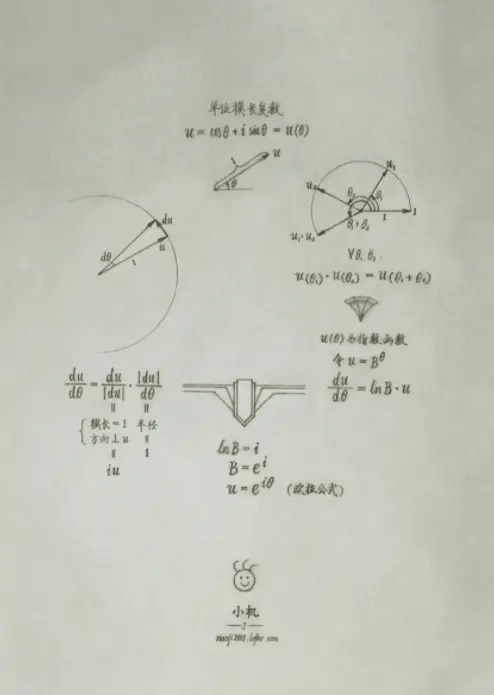 单位模长复数
u = cosθ + i sinθ = u(θ)
1
u
θ
u₁
u₂
θ₂
θ₁
θ₁+θ₂
1
1
u₁·u₂
du
u
dθ
1
∀θ₁、θ₂,
u(θ₁)·u(θ₂) = u(θ₁+θ₂)
u(θ)为指数函数
令 u = B^θ
du/dθ = lnB·u
du/dθ = du/|du| · |du|/dθ
॥ ॥
{ 模长=1 半径
方向⊥u ॥
॥ 1
iu
lnB = i
B = e^i
u = e^{iθ} (欧拉公式)
小机
—1—
xiaoji2015.lofter.com